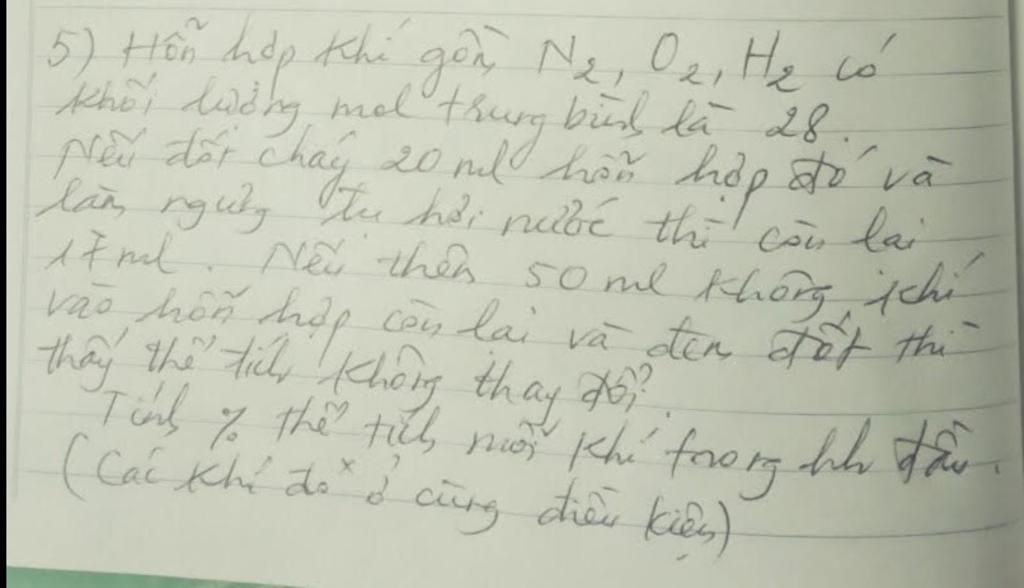 5) Hỗn hợp khí gồm N₂, O₂, H₂ có
khối lượng mol trung bình là 28.
Nếu đốt cháy 20 ml hỗn hợp đó và
làm ngưng tụ hơi nước thì còn lại
17 ml. Nếu thêm 50 ml không khí
vào hỗn hợp còn lại và đem đốt thì
thấy thể tích không thay đổi?
Tính % thể tích mỗi khí trong hh đầu.
(Các khí đo ở cùng điều kiện)